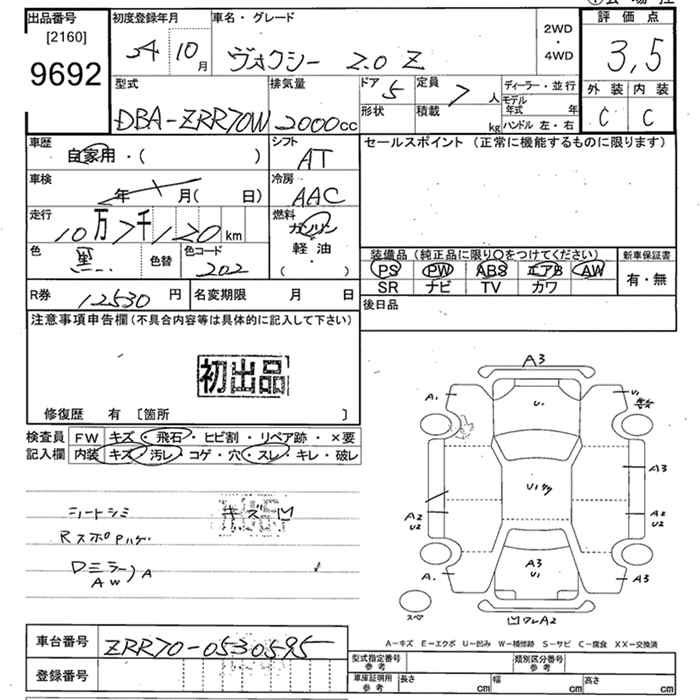 出品番号 初度登録年月 車名・グレード 評価点
[2160]
9692
34 10月 ヴォクシー 2.0 Z 2WD・4WD 3,5
外装 内装
C C
型式 排気量 ドア 5 定員 7人 ディーラー・並行
DBA-ZRR70W 2000cc 形状 積載 kg モデル年式 年
ハンドル 左・右
車歴 自家用・( ) シフト AT
セールスポイント (正常に機能するものに限ります)
車検 年 月( 日) 冷房 AAC
走行 10万7千120km 燃料 ガソリン・軽油・( )
色 黒 色替 色コード 202
装備品 (純正品に限り○をつけてください) 新車保証書
PS PW ABS エアB AW 有・無
SR ナビ TV カワ
R券 12530円 名変期限 月 日 後日品
注意事項申告欄 (不具合内容等は具体的に記入して下さい)
初出品
修復歴 有 [箇所 ]
検査員記入欄
FW キズ・飛石・ヒビ割・リペア跡・×要
内装 キズ・汚レ・コゲ・穴・スレ・キレ・破レ
シートシミ キズ凹
RスポPハゲ
Dミラー A
AW
A3
A. U. U1
U1
A3
A2 U2 A2 U2
A. A3 U1 A3
スペア 凹ワレA2
A-キズ E-エクボ U-凹み W-補修跡 S-サビ C-腐食 XX-交換済
車台番号 ZRR70-0530595
登録番号
型式指定番号 参考 類別区分番号 参考
車庫証明用 参考 長さ cm 幅 cm 高さ cm